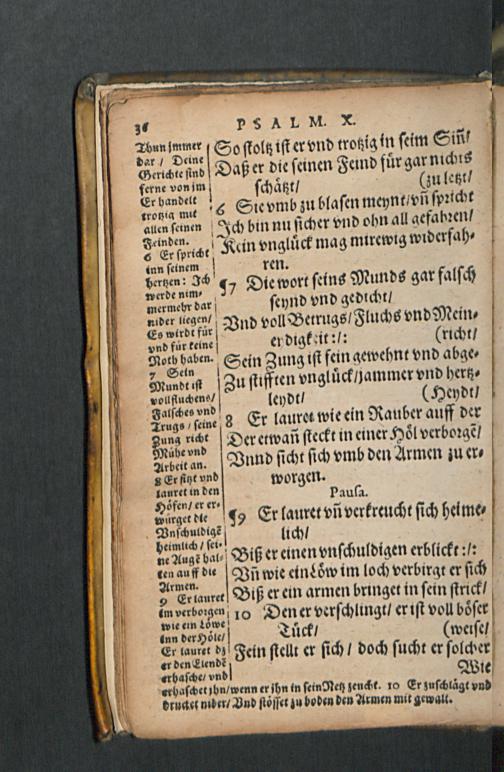 36
PSALM. X.
Thun jmmer
dar / Deine
Gerichte sind
ferne von jm
Er handelt
trotzig mit
allen seinen
Feinden.
6 Er spricht
inn seinem
hertzen: Jch
werde nim-
mermehr dar
nider liegen/
Es wirdt für
vnd für keine
Noth haben.
7 Sein
Mundt ist
vollfluchens/
Falsches vnd
Trugs / seine
Zung richt
Mühe vnd
Arbeit an.
8 Er sitzt vnd
lauret in den
Höfen/ er er-
würget die
Vnschuldigẽ
heimlich / sei-
ne Augẽ hal-
ten auff die
Armen.
9 Er lauret
im verborgen
wie ein Löwe
inn der Höle/
Er lauret dz
er den Elendẽ
erhasche/ vnd
erhaschet jhn/wenn er jhn in sein Netz zeucht. 10 Er zuschlägt vnd
drucket nider/ Vnd stösset zu boden den Armen mit gewalt.
So stoltz ist er vnd trotzig in seim Siñ/
Daß er die seinen Feind für gar nichts
schätzt/ (zu letzt/
6 Sie vmb zu blasen meynt/ vñ spricht
Jch bin nu sicher vnd ohn all gefahren/
Kein vnglück mag mir ewig widerfah-
ren.
¶7 Die wort seins Munds gar falsch
seynd vnd gedicht/
Vnd voll Betrugs/ Fluchs vnd Mein-
erdigkeit :/: (richt/
Sein Zung ist fein gewehnt vnd abge-
Zu stifften vnglück/jammer vnd hertz-
leydt/ (Heydt/
8 Er lauret wie ein Rauber auff der
Der etwañ steckt in einer Höl verborgẽ/
Vnnd sicht sich vmb den Armen zu er-
worgen.
Pausa.
¶9 Er lauret vñ verkreucht sich heime-
lich/
Biß er einen vnschuldigen erblickt :/:
Vñ wie ein Löw im loch verbirgt er sich
Biß er ein armen bringet in sein strick/
10 Den er verschlingt/ er ist voll böser
Tück/ (weise/
Fein stellt er sich / doch sucht er solcher
Wie